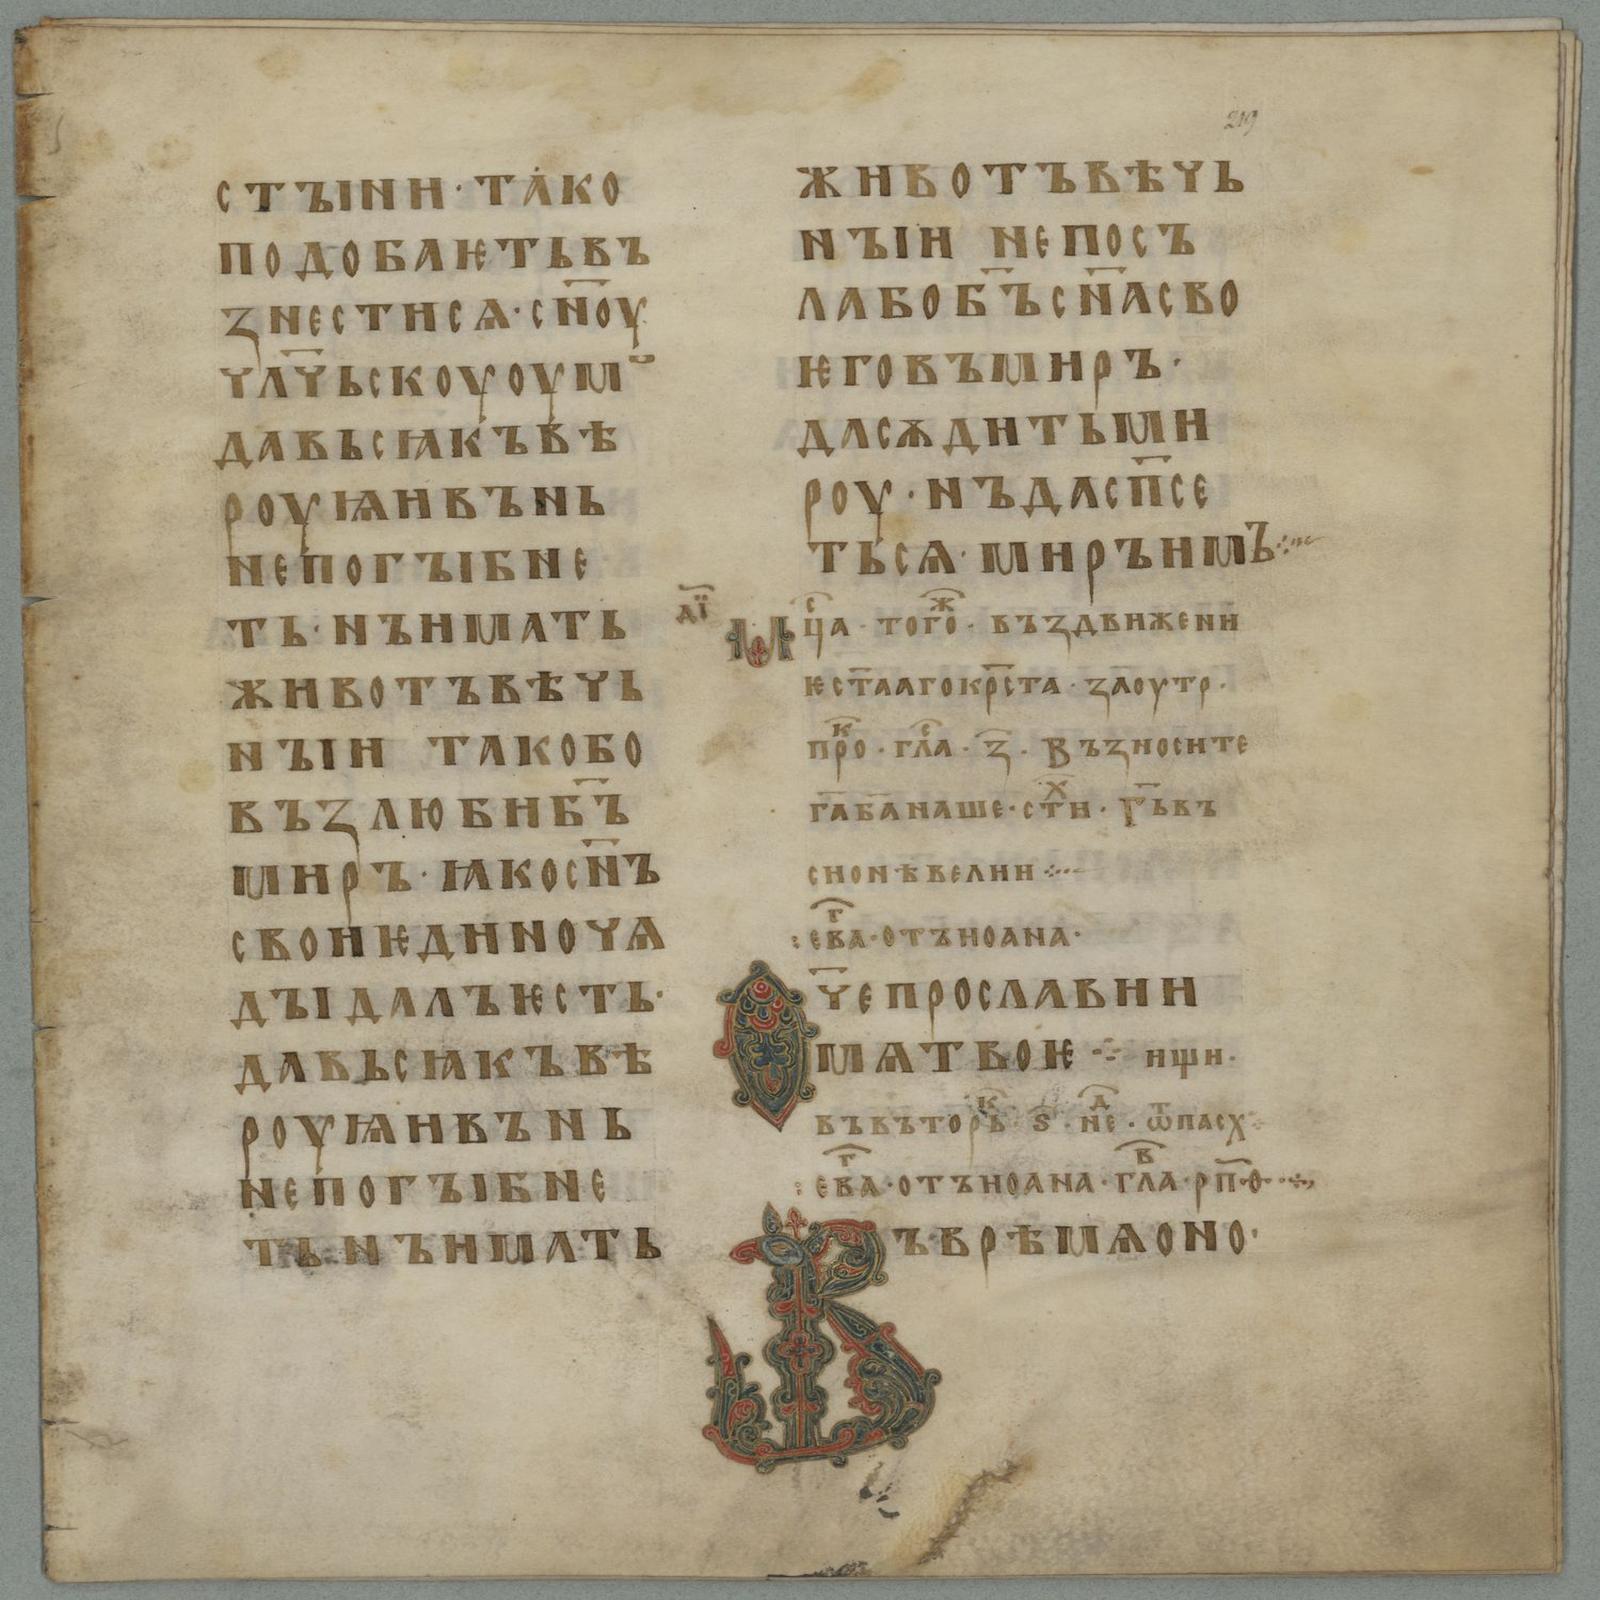 219
стъıни· тако
подобаѥтьвъ
знестисѧ· сн҃оу
чл҃чьскоуоумꙋ
давьсꙗкъвѣ
роуꙗивънь
непогъıбне
ть· нъимать
животъвѣчь
нъıи такобо
възлюбиб҃ъ
миръ· ꙗкосн҃ъ
свонѥдиночѧ
дъıдалъѥсть·
давьсꙗкъвѣ
роуꙗивънь
непогъıбне
ть· нъимать
животъвѣчь
нъıи непосъ
лабоб҃ъсн҃асво
ѥговъмиръ·
дасѫдитьми
роу· нъдасп҃се
тьсѧ· миръимъ
д҃ı
мⷭ҇ца· тогоⷤ· въздвижени
ѥст҃аагокр҃ста· заоутр·
проⷦ· глаⷭ· з҃· Възносите
г҃аб҃анаше· стиⷯ· г҃ьвъ
сионѣвелии
еваⷢ· отъиоана·
Оч҃епрослави
имѧтвоѥ ищи·
въвъторьⷦ· ѕ҃· неⷣ· ѿпасх
еваⷢ· отъиоана· глаⷡ· рп҃ѳ
Въврѣмѧоно·